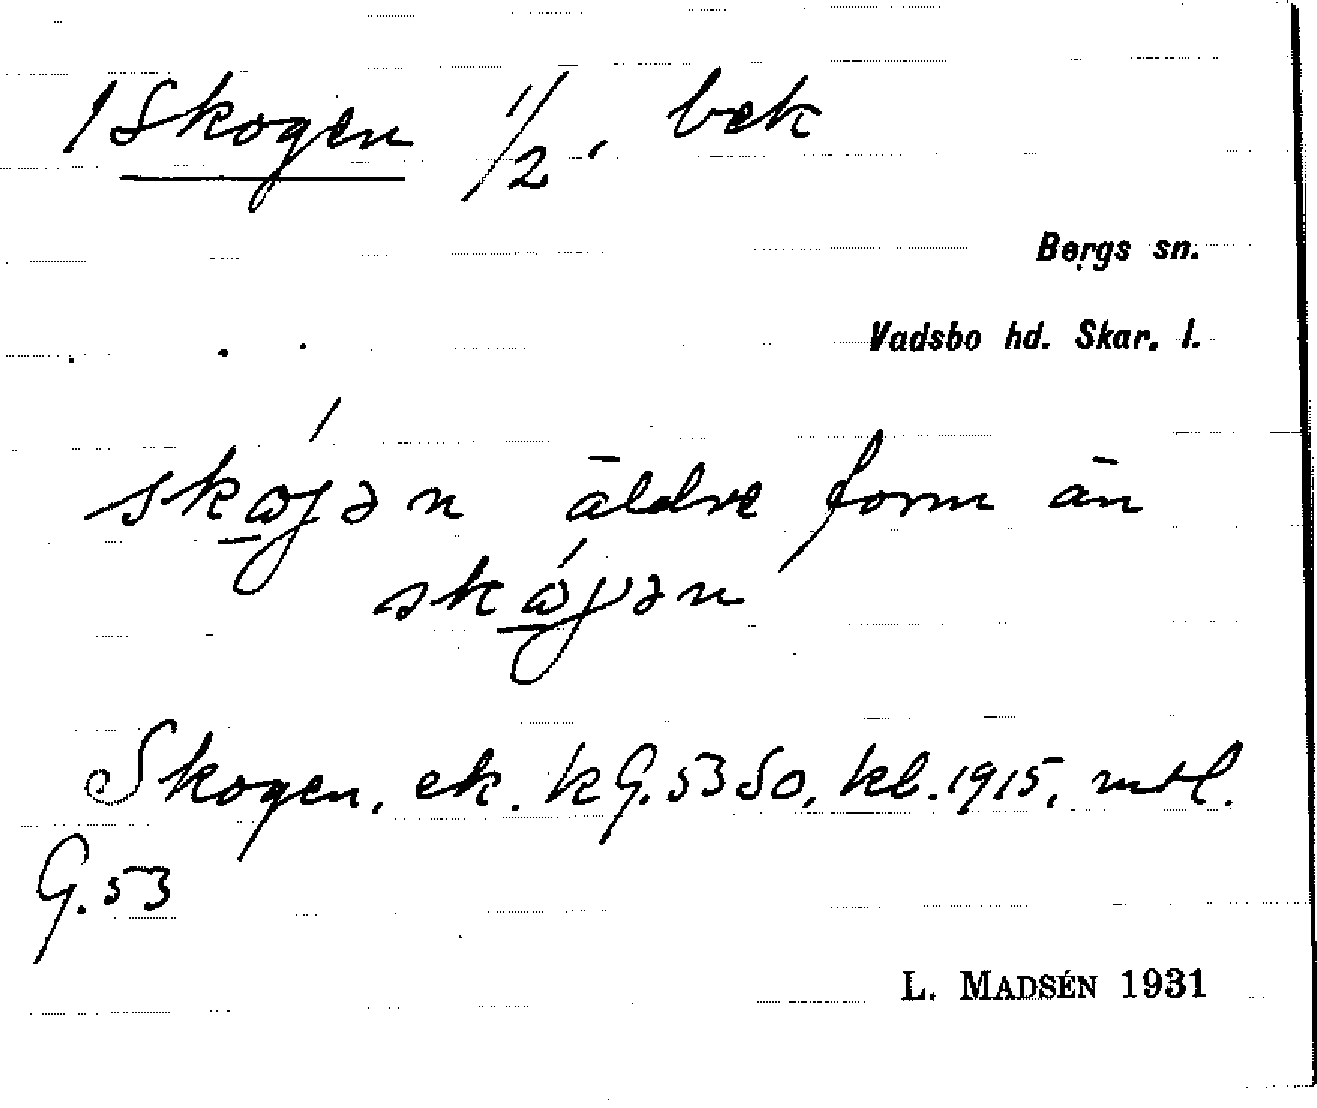 1 Skogen 1/2, bek
Bergs sn.
Vadsbo hd. Skar. l.
skøjən äldre form än
skåjən
Skogen, ek. kG.53 SO, kb. 1915, mtl.
G.53
L. MADSÉN 1931